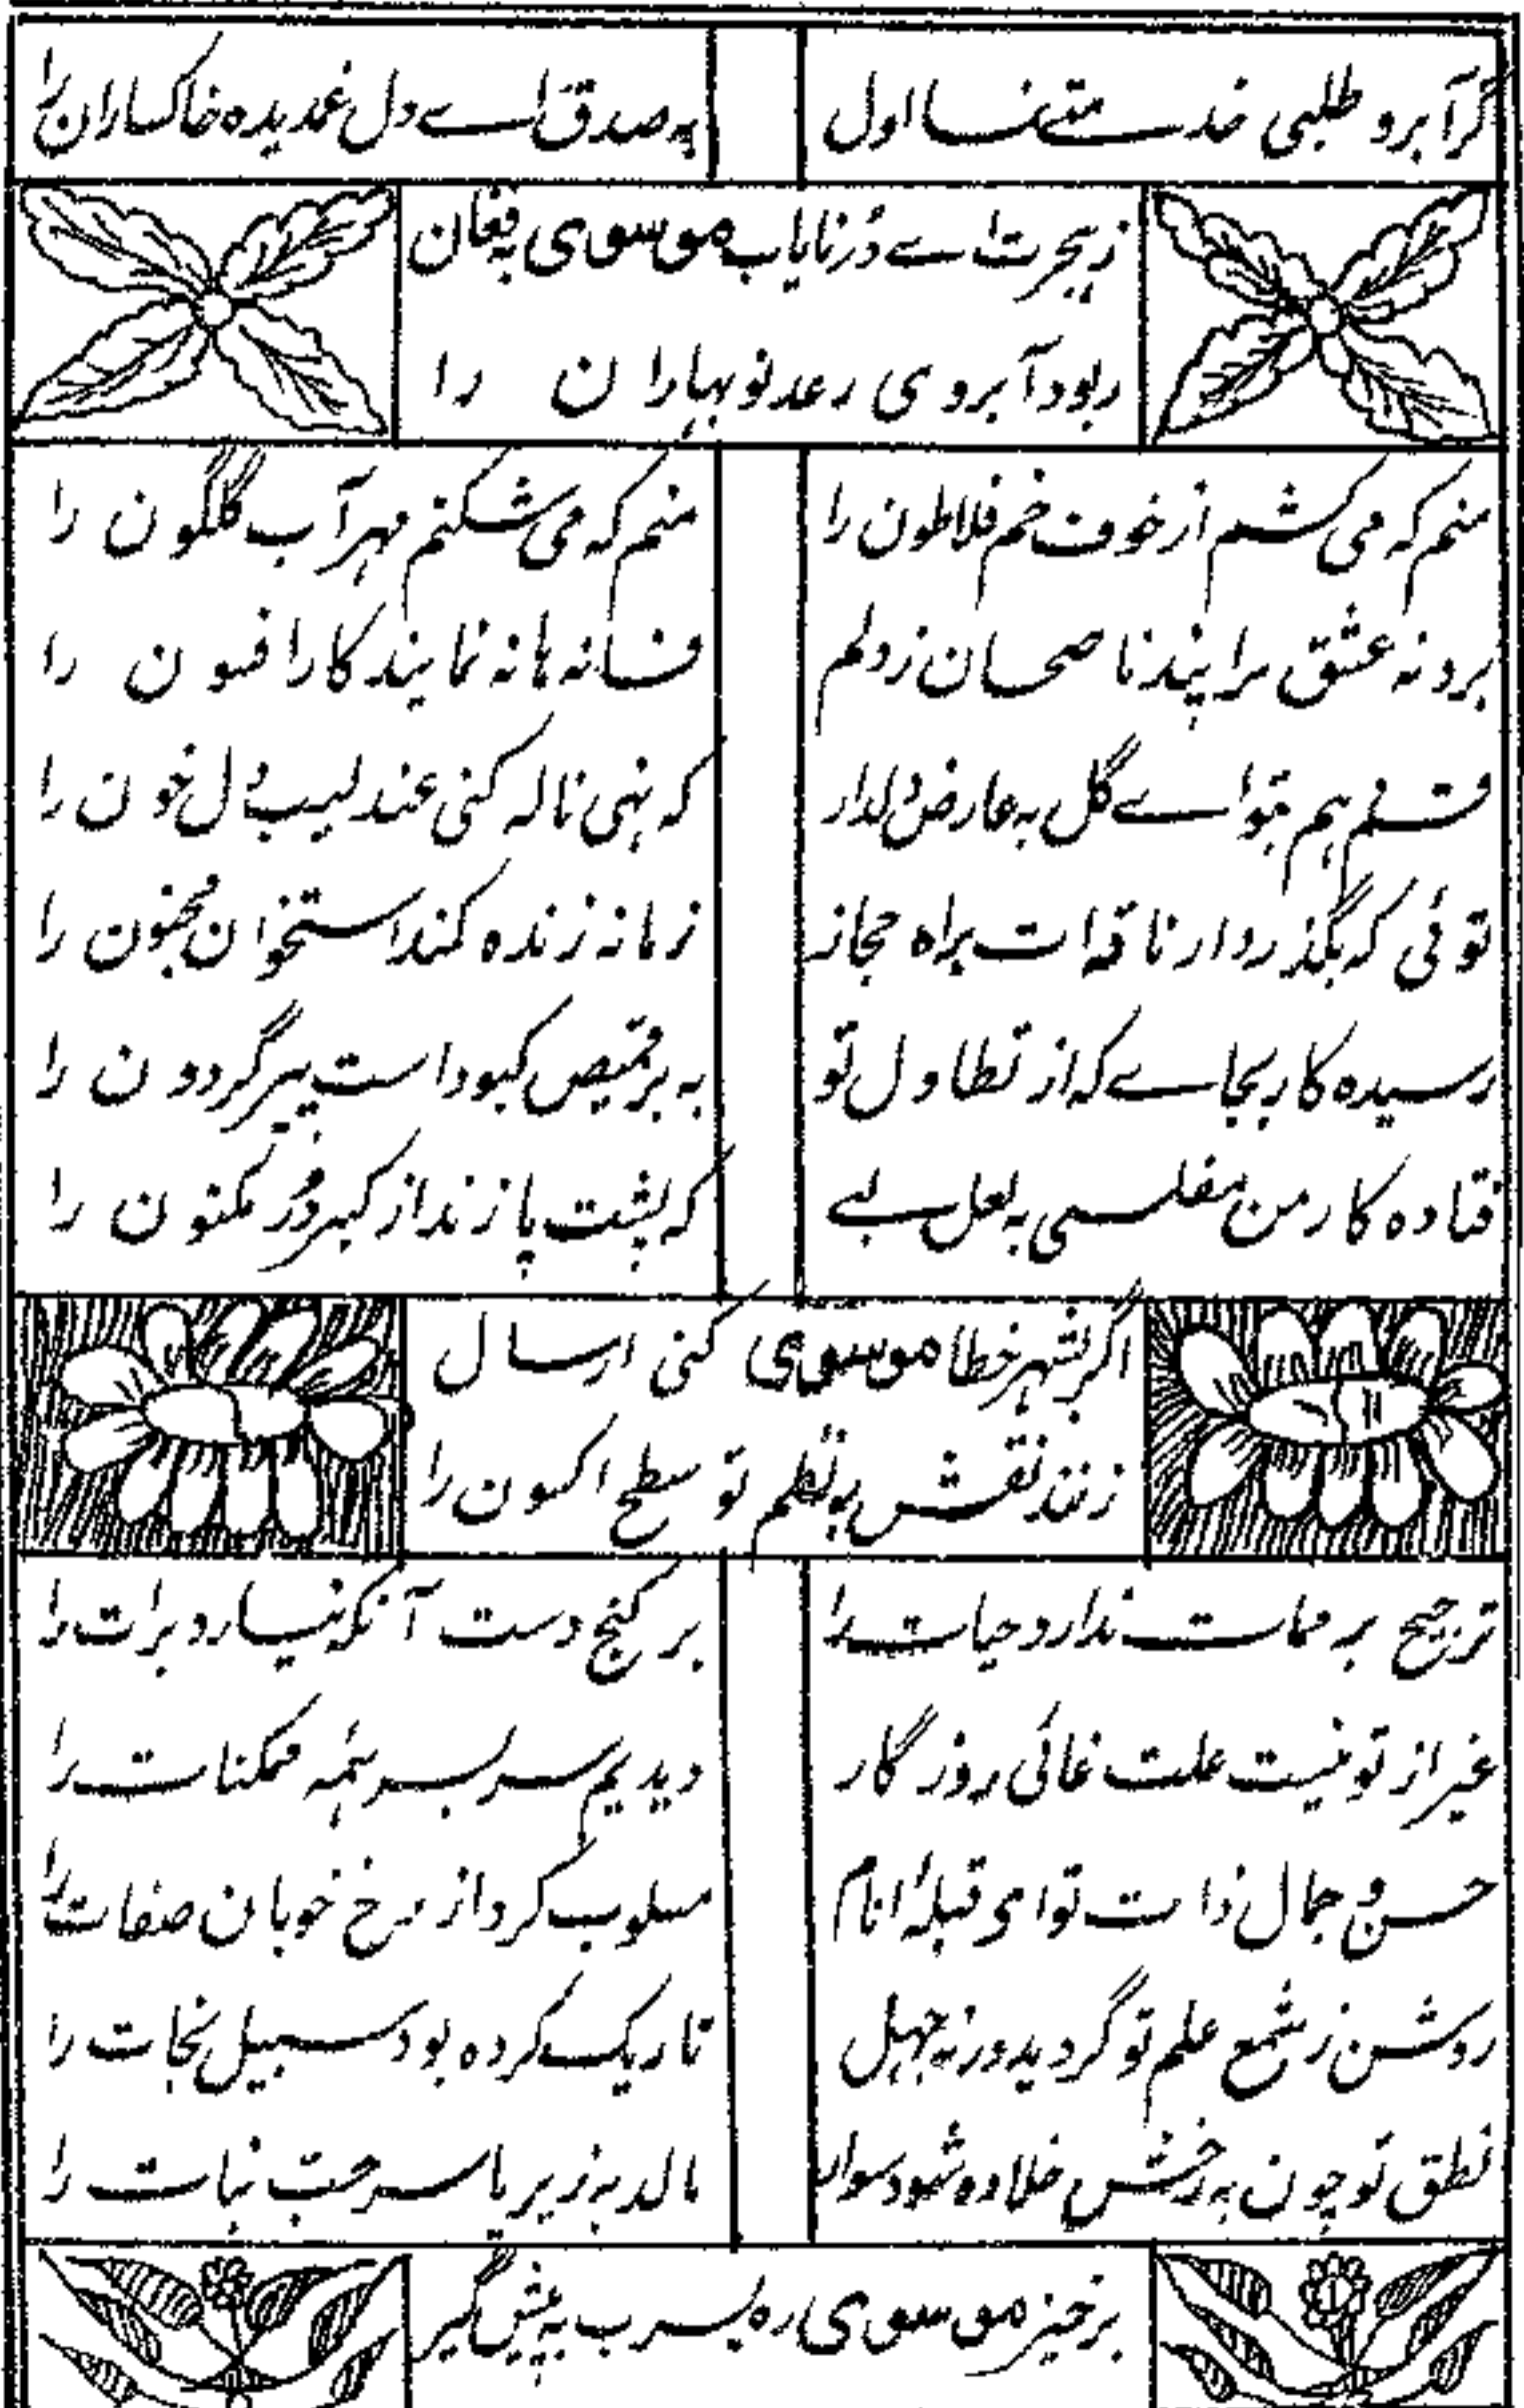 گر آبرو طلبی خدمتے نما اول
به صدق اے دل غمدیده خاکساران را
زهجرت اے دُر نایاب موسوی به فغان
ربود آبروی رعد نوبهاران را
منم که می کشم از خوف خم فلاطون را
منم که می شکنم مهر آب گلگون را
برد نه عشق مرا پند ناصحان ز دلم
فسانه ها نه نمایند کار افسون را
قسم بتو اے گل به عارض دلدار
که نهی ناله کنی عندلیب دل خون را
توئی که بگذرد ار ناقه ات براه حجاز
زمانه زنده کند استخوان مجنون را
رسیده کار بجاے که از تطاول تو
به بر قمیص کبود است پیر گردون را
فتاده کار من مفلسی به لعل لبے
که پشت پا زند از کبر دُرّ مکنون را
اگر بشهر خطا موسوی کنی ارسال
زنند نقش به نظم تو سطح اکسون را
ترجیح بر ممات ندارد حیات را
بر کنج دست آنکه نیارد برات را
غیر از تو نیست علت غائی روزگار
دیدیم سر بسر همه ممکنات را
حسن و جمال ذات تو ای قبلهٔ انام
مسلوب کرد از رخ خوبان صفات را
روشن ز شمع علم تو گردید ورنه جهل
تاریک کرده بود سبیل نجات را
نطق تو چون به رخش علاوه شود سوار
مالد به زیر پا سر حب نبات را
برخیز موسوی ره یسرب به پیش گیر